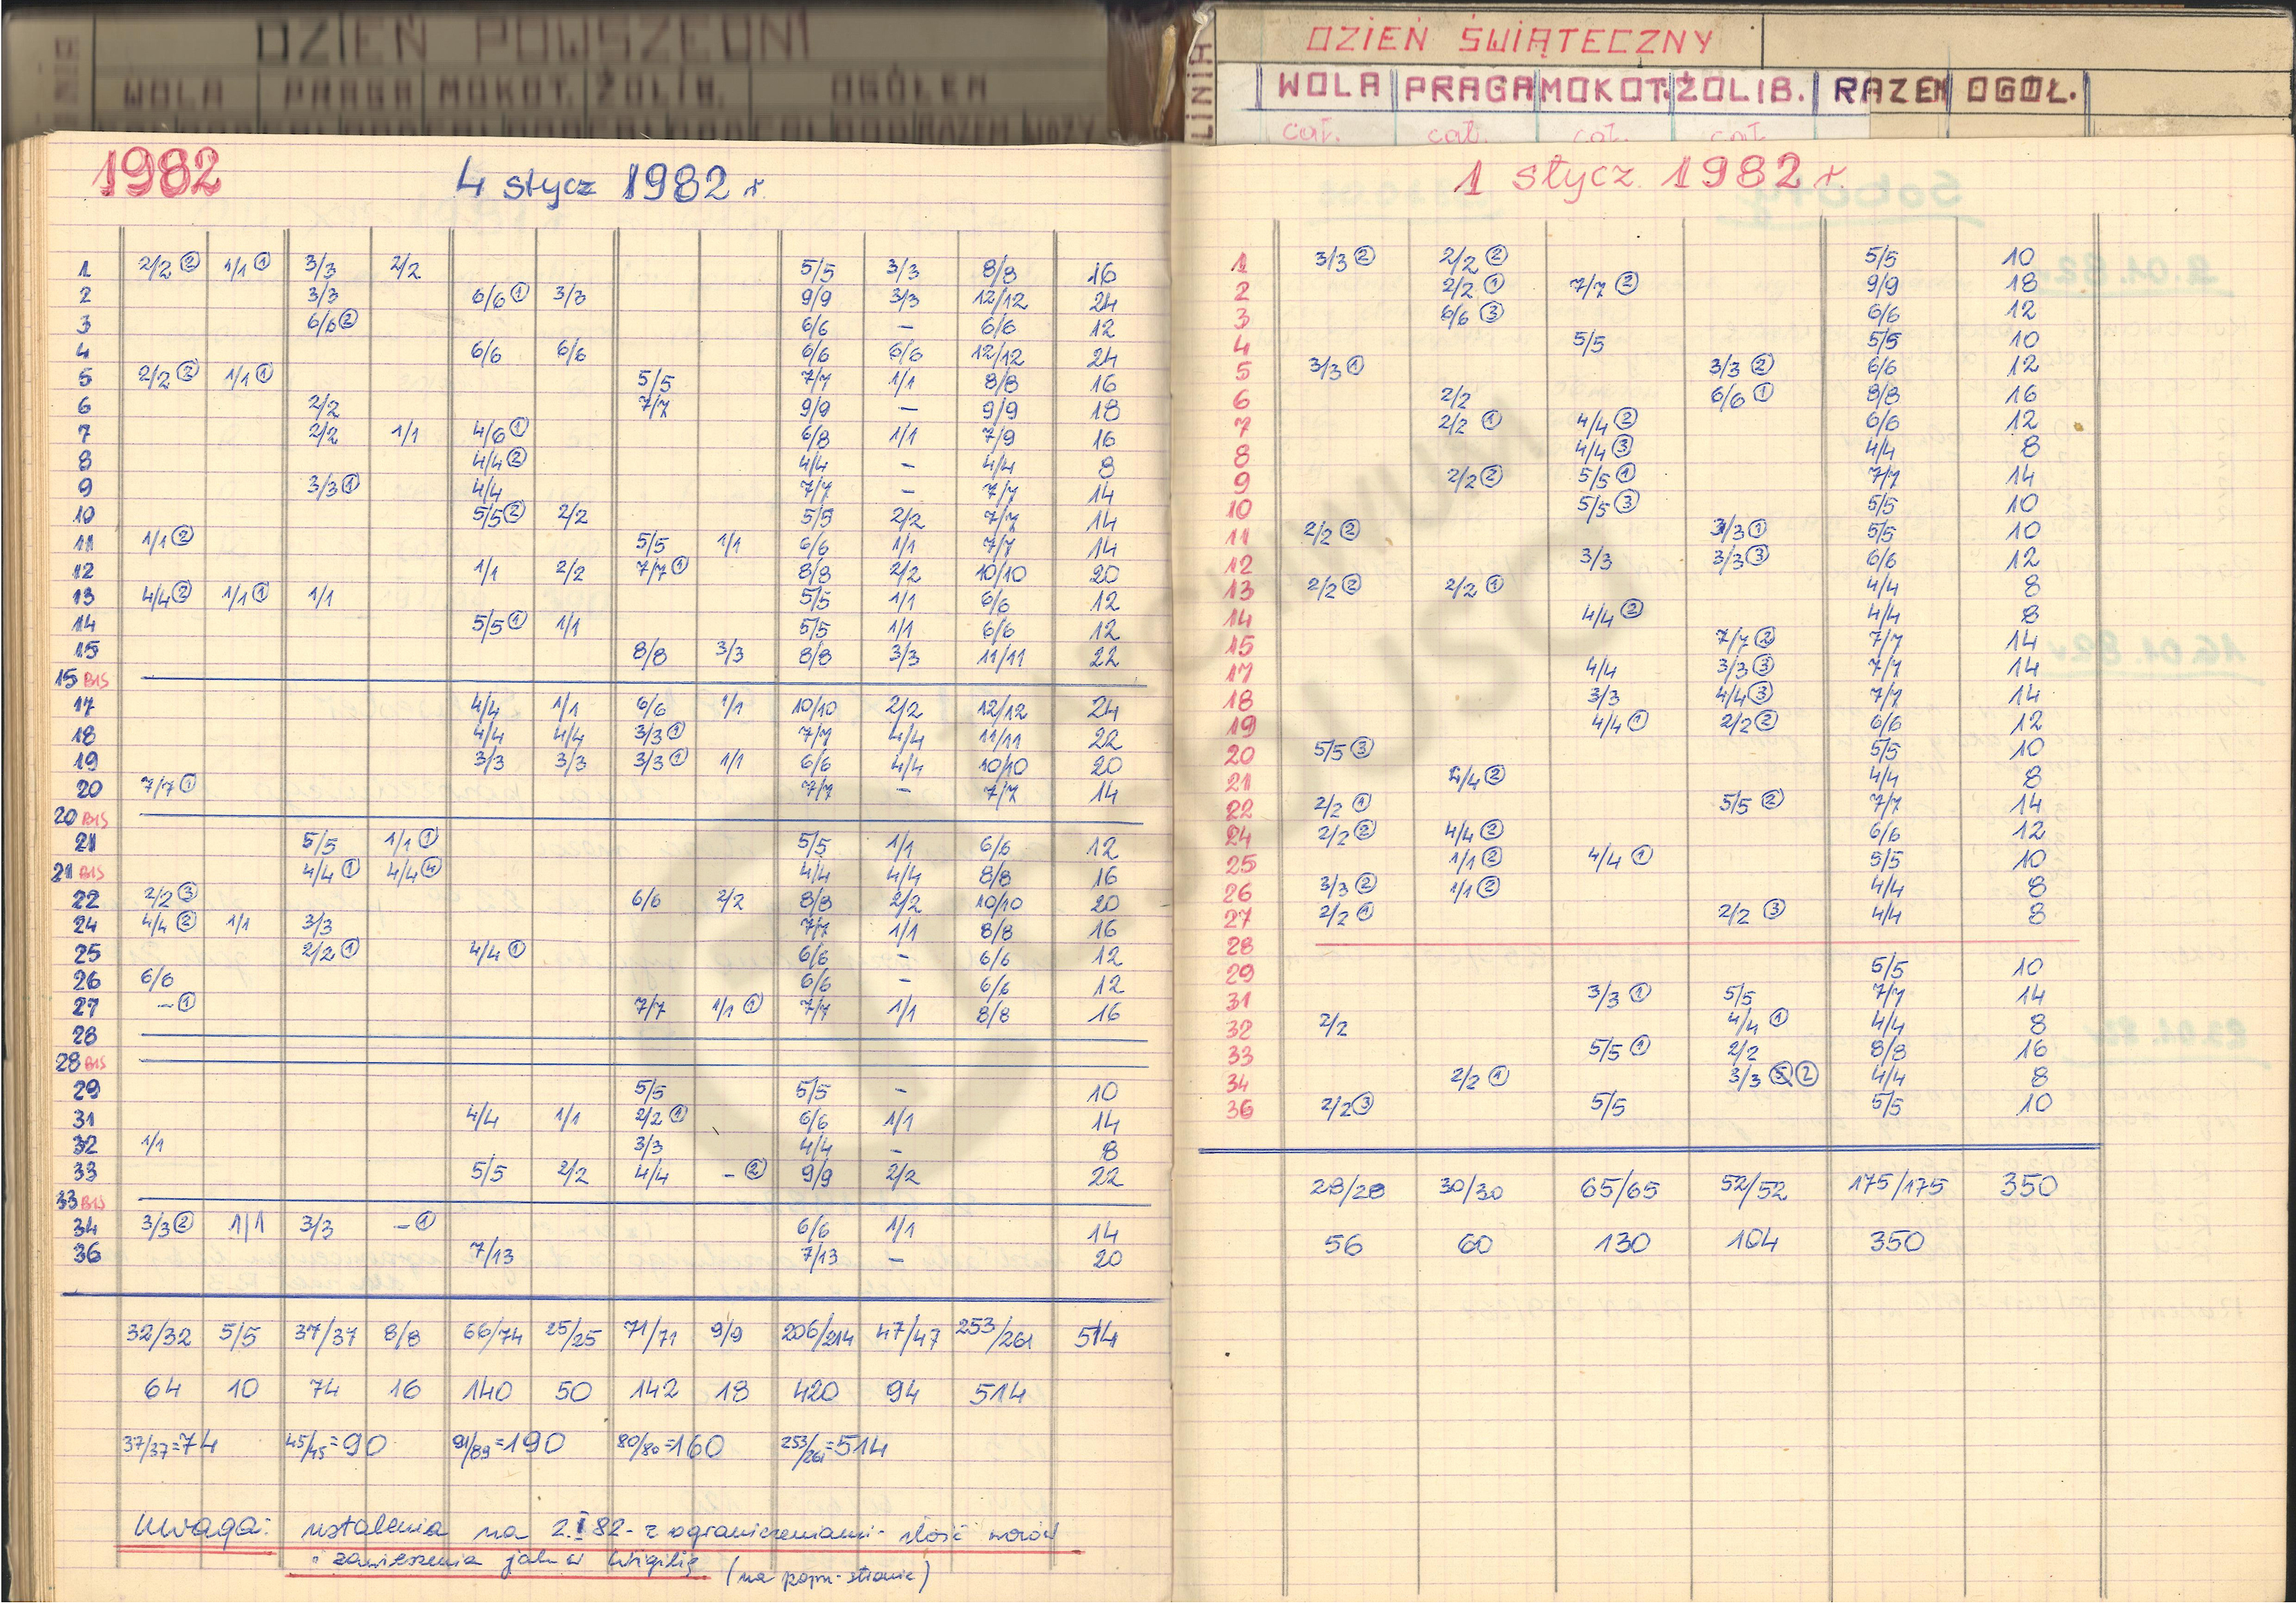 DZIEŃ POWSZEDNI
WOLA PRAGA MOKOT. ŻOLIB. OGÓŁEM
1982 4 stycz 1982 r.
1 2/2 ② 1/1 ① 3/3 2/2 5/5 3/3 8/8 16
2 3/3 6/6 ① 3/3 9/9 3/3 12/12 24
3 6/6 ② 6/6 – 6/6 12
4 6/6 6/6 6/6 6/6 12/12 24
5 2/2 ② 1/1 ① 5/5 7/7 1/1 8/8 16
6 2/2 7/7 9/9 – 9/9 18
7 2/2 1/1 4/6 ① 6/8 1/1 7/9 16
8 4/4 ② 4/4 – 4/4 8
9 3/3 ① 4/4 7/7 – 7/7 14
10 5/5 ② 2/2 5/5 2/2 7/7 14
11 1/1 ② 5/5 1/1 6/6 1/1 7/7 14
12 1/1 2/2 7/7 ① 8/8 2/2 10/10 20
13 4/4 ② 1/1 ① 1/1 5/5 1/1 6/6 12
14 5/5 ① 1/1 5/5 1/1 6/6 12
15 8/8 3/3 8/8 3/3 11/11 22
15 BIS
17 4/4 1/1 6/6 1/1 10/10 2/2 12/12 24
18 4/4 4/4 3/3 ① 7/7 4/4 11/11 22
19 3/3 3/3 3/3 ① 1/1 6/6 4/4 10/10 20
20 7/7 ① 7/7 – 7/7 14
20 BIS
21 5/5 1/1 ① 5/5 1/1 6/6 12
21 BIS 4/4 ① 4/4 ④ 4/4 4/4 8/8 16
22 2/2 ③ 6/6 2/2 8/8 2/2 10/10 20
24 4/4 ② 1/1 3/3 7/7 1/1 8/8 16
25 2/2 ① 4/4 ① 6/6 – 6/6 12
26 6/6 6/6 – 6/6 12
27 – ① 7/7 1/1 ① 7/7 1/1 8/8 16
28
28 BIS
29 5/5 5/5 – 10
31 4/4 1/1 2/2 ① 6/6 1/1 14
32 1/1 3/3 4/4 – 8
33 5/5 2/2 4/4 – ② 9/9 2/2 22
33 BIS
34 3/3 ② 1/1 3/3 – ① 6/6 1/1 14
36 7/13 7/13 – 20
32/32 5/5 37/37 8/8 66/74 25/25 71/71 9/9 206/214 47/47 253/261 514
64 10 74 16 140 50 142 18 420 94 514
37/37=74 45/45=90 91/89=190 80/80=160 253/261=514
Uwaga: ustalenia na 2.I 82 - z ograniczeniami - ilość wozów
i zawieszenia jak w Wigilię (na poprz. stronie)
LINIA DZIEŃ ŚWIĄTECZNY
WOLA PRAGA MOKOT. ŻOLIB. RAZEM OGÓŁ.
cał. cał. cał. cał.
1 stycz. 1982 r.
1 3/3 ② 2/2 ② 5/5 10
2 2/2 ① 7/7 ② 9/9 18
3 6/6 ③ 6/6 12
4 5/5 5/5 10
5 3/3 ① 3/3 ② 6/6 12
6 2/2 6/6 ① 8/8 16
7 2/2 ① 4/4 ② 6/6 12
8 4/4 ③ 4/4 8
9 2/2 ② 5/5 ① 7/7 14
10 5/5 ③ 5/5 10
11 2/2 ② 3/3 ① 5/5 10
12 3/3 3/3 ③ 6/6 12
13 2/2 ② 2/2 ① 4/4 8
14 4/4 ② 4/4 8
15 7/7 ② 7/7 14
17 4/4 3/3 ③ 7/7 14
18 3/3 4/4 ③ 7/7 14
19 4/4 ① 2/2 ② 6/6 12
20 5/5 ③ 5/5 10
21 4/4 ② 4/4 8
22 2/2 ① 5/5 ② 7/7 14
24 2/2 ② 4/4 ② 6/6 12
25 1/1 ② 4/4 ① 5/5 10
26 3/3 ② 1/1 ② 4/4 8
27 2/2 ① 2/2 ③ 4/4 8
28
29 5/5 10
31 3/3 ① 5/5 7/7 14
32 2/2 4/4 ① 4/4 8
33 5/5 ① 2/2 8/8 16
34 2/2 ① 3/3 ② 4/4 8
36 2/2 ③ 5/5 5/5 10
28/28 30/30 65/65 52/52 175/175 350
56 60 130 104 350